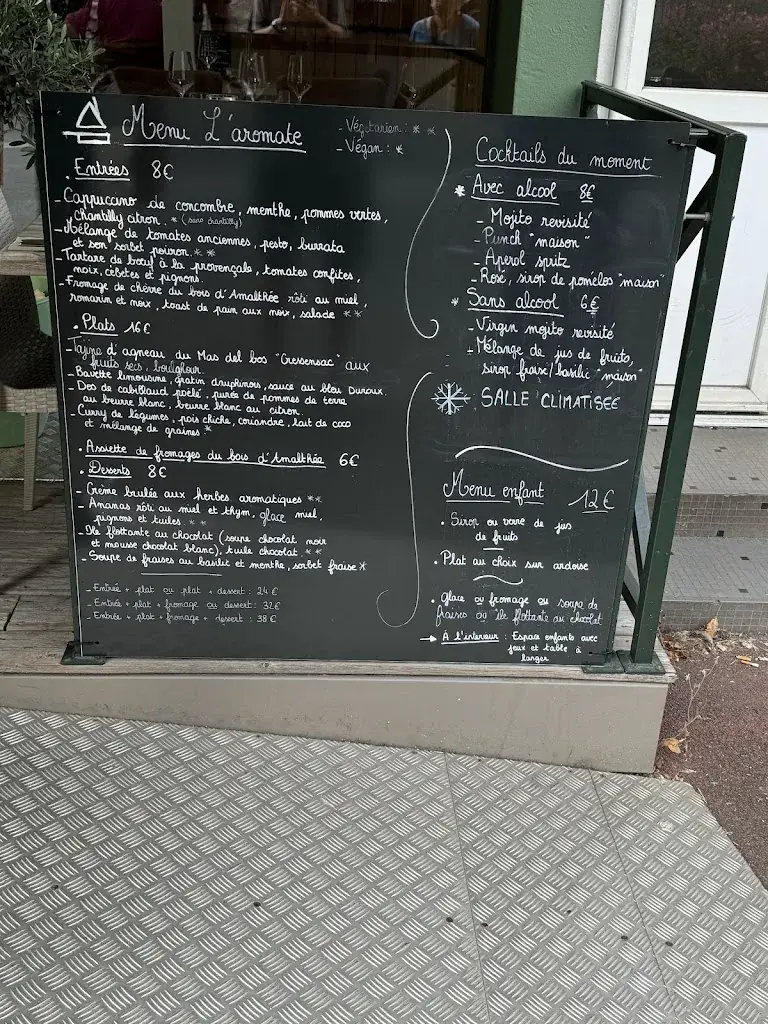 Menu L'aromate
- Végétarien : * *
- Végan : *
. Entrées 8€
- Cappuccino de concombre, menthe, pommes vertes,
Chantilly citron. * (sans chantilly)
- Mélange de tomates anciennes, pesto, burrata
et son sorbet poivron. * *
- Tartare de bœuf à la provençale, tomates confites,
noix, cébetes et pignons.
- Fromage de chèvre du bois d'Amalthée rôti au miel,
romarin et noix, toast de pain aux noix, salade * *
. Plats 16€
- Tajine d'agneau du Mas del bos "Cressensac" aux
fruits secs, boulghour.
- Bavette limousine, gratin dauphinois, sauce au bleu Duroux.
- Dos de cabillaud poêlé, purée de pommes de terre
au beurre blanc, beurre blanc au citron.
- Curry de légumes, pois chiche, coriandre, lait de coco
et mélange de graines. *
. Assiette de fromages du bois d'Amalthée 6€
. Desserts 8€
- Crème brulée aux herbes aromatiques * *
- Ananas rôti au miel et thym, glace miel,
pignons et tuiles. * *
- Ile flottante au chocolat (soupe chocolat noir
et mousse chocolat blanc), tuile chocolat * *
- Soupe de fraises au basilic et menthe, sorbet fraise *
- Entrée + plat ou plat + dessert : 24€
- Entrée + plat + fromage ou dessert : 32€
- Entrée + plat + fromage + dessert : 38€
Cocktails du moment
* Avec alcool 8€
- Mojito revisité
- Punch "maison"
- Aperol spritz
- Rosé, sirop de pomélos "maison"
* Sans alcool 6€
- Virgin mojito revisité
- Mélange de jus de fruits,
sirop fraise/basilic "maison"
SALLE CLIMATISEE
Menu enfant 12€
. Sirop ou verre de jus
de fruits
. Plat au choix sur ardoise
. Glace ou fromage ou soupe de
fraises ou île flottante au chocolat
→ À l'intérieur : Espace enfants avec
jeux et table à
langer